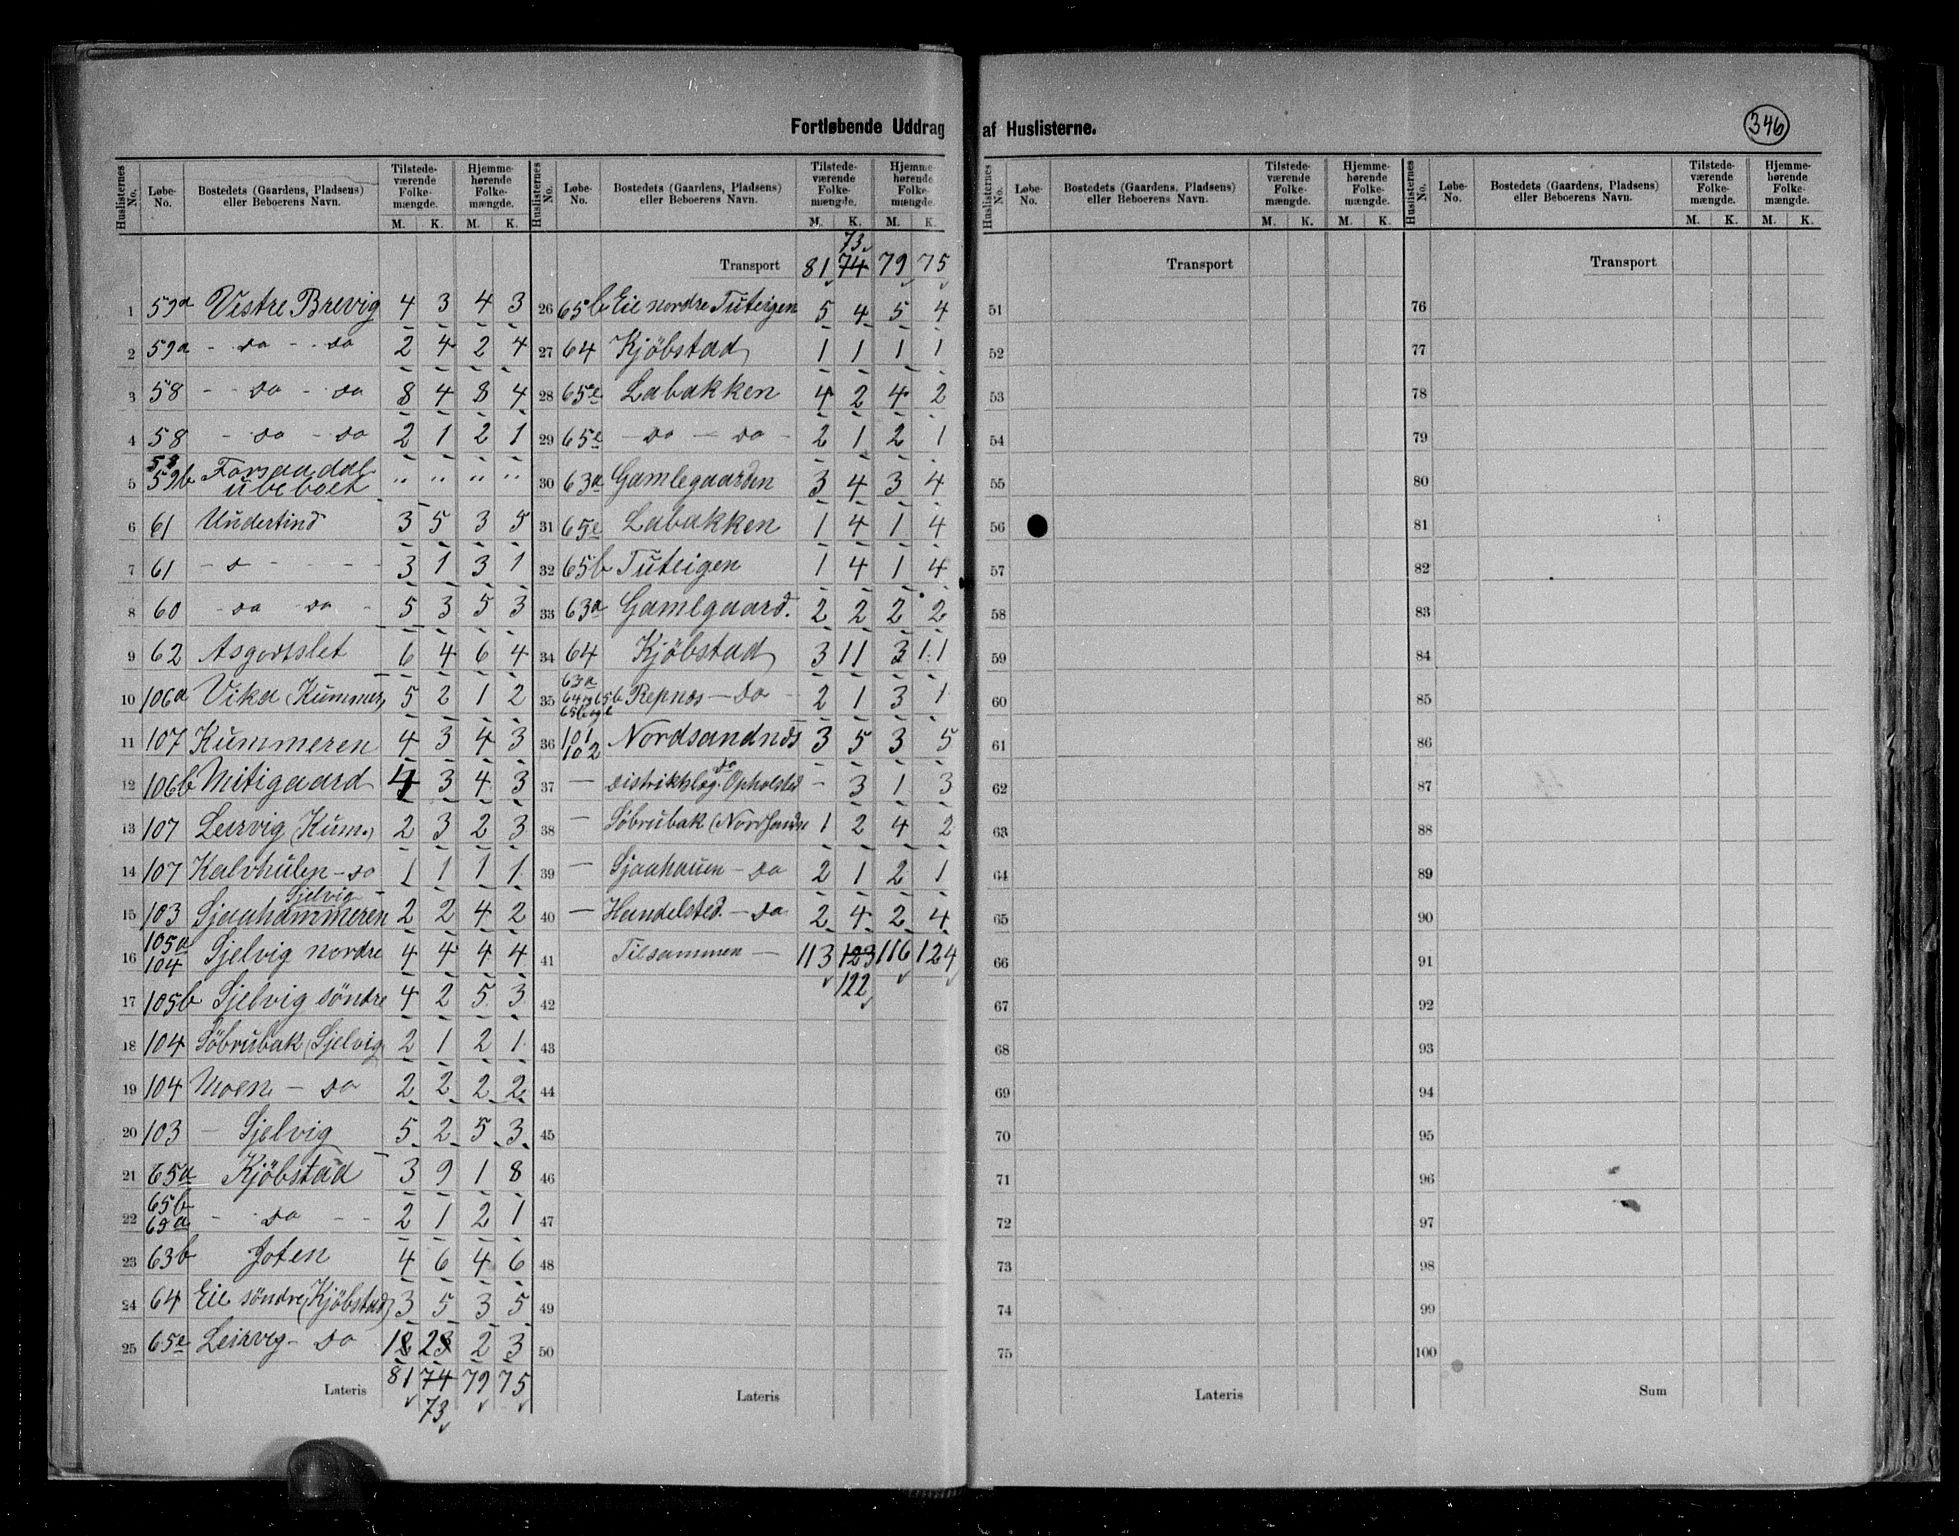 Fortløbende Uddrag af Huslisterne.
346
Huslisternes No. Løbe-No. Bostedets (Gaardens, Pladsens) eller Beboerens Navn. Tilstedeværende Folkemængde. M. K. Hjemmehørende Folkemængde. M. K.
1 59a Vestre Brevig 4 3 4 3
2 59a - do - do 2 4 2 4
3 58 - do - do 8 4 8 4
4 58 - do - do 2 1 2 1
5 58 59b Forsaadal ubeboet " " " "
6 61 Undertind 3 5 3 5
7 61 - d - 3 1 3 1
8 60 - do do - 5 3 5 3
9 62 Asgortslet 6 4 6 4
10 106a Vika (Kummer) 5 2 1 2
11 107 Kummeren 4 3 4 3
12 106b Mitigaard 4 3 4 3
13 107 Leirvig (Kum.) 2 3 2 3
14 107 Kalvhulen - do 1 1 1 1
15 103 Sjaahammeren Sjelvig 2 2 4 2
16 105a 104 Sjelvig nordre 4 4 4 4
17 105b Sjelvig söndre 4 2 5 3
18 104 Söbrubak (Sjelvig) 2 1 2 1
19 104 Moen - do 2 2 2 2
20 103 - Sjelvig 5 2 5 3
21 65a Kjöbstad 3 9 1 8
22 65b 69a - do - - 2 1 2 1
23 63b Joten 4 6 4 6
24 64 Eie söndre (Kjöbstad) 3 5 3 5
25 65e Leirvig - do 2 3
Lateris 81 74 79 75
73
Huslisternes No. Løbe-No. Bostedets (Gaardens, Pladsens) eller Beboerens Navn. Tilstedeværende Folkemængde. M. K. Hjemmehørende Folkemængde. M. K.
73
Transport 81 74 79 75
26 65b Eie nordre Tuteigen 5 4 5 4
27 64 Kjöbstad 1 1 1 1
28 65e Labakken 4 2 4 2
29 65e - do - do - 2 1 2 1
30 63a Gamlegaarden 3 4 3 4
31 65e Labakken 1 4 1 4
32 65b Tuteigen 1 4 1 4
33 63a Gamlgaard. 2 2 2 2
34 64 Kjöbstad 3 11 3 11
35 63a Repnæs - do - 2 1 3 1
36 101 102 Nordsandnæs 3 5 3 5
37 - Distriktslæg. Opholsted do - 3 1 3
38 - Söbrubak (Nordsandn 1 2 4 2
39 - Sjaahauen - do 2 1 2 1
40 - Handelsted. - do 2 4 2 4
41 Tilsammen - 113 123 116 124
122
42
43
44
45
46
47
48
49
50
Lateris
Huslisternes No. Løbe-No. Bostedets (Gaardens, Pladsens) eller Beboerens Navn. Tilstedeværende Folkemængde. M. K. Hjemmehørende Folkemængde. M. K.
Transport
51
52
53
54
55
56
57
58
59
60
61
62
63
64
65
66
67
68
69
70
71
72
73
74
75
Lateris
Huslisternes No. Løbe-No. Bostedets (Gaardens, Pladsens) eller Beboerens Navn. Tilstedeværende Folkemængde. M. K. Hjemmehørende Folkemængde. M. K.
Transport
76
77
78
79
80
81
82
83
84
85
86
87
88
89
90
91
92
93
94
95
96
97
98
99
100
Sum